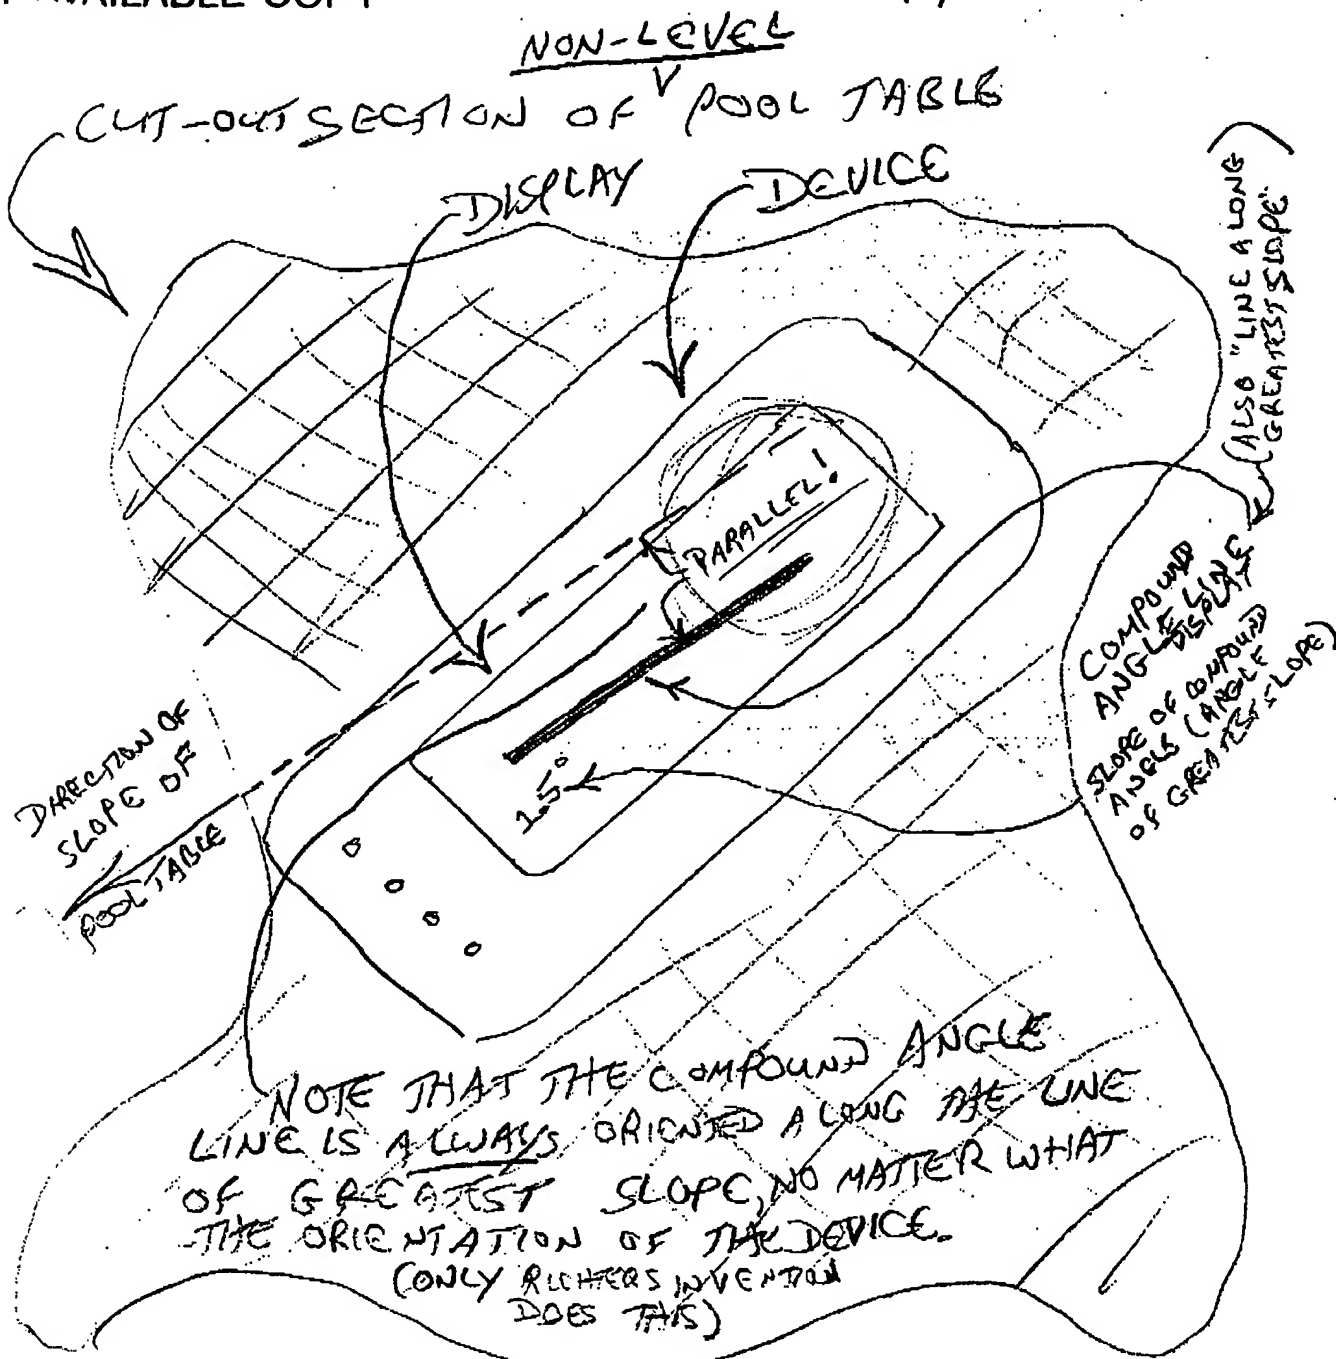 AVAILABLE COPY
NON-LEVEL
CUT-OUT SECTION OF V POOL TABLE
DISPLAY
DEVICE
(ALSO "LINE ALONG
GREATEST SLOPE"
)
PARALLEL!
COMPOUND
ANGLE LINE
DISPLAY
SLOPE OF COMPOUND
ANGLS (ANGLE
OF GREATEST SLOPE)
1.5°
DIRECTION OF
SLOPE OF
POOL TABLE
NOTE THAT THE COMPOUND ANGLE
LINE IS ALWAYS ORIENTED ALONG THE LINE
OF GREATEST SLOPE, NO MATTER WHAT
THE ORIENTATION OF THE DEVICE.
(ONLY RICHTERS INVENTION
DOES THIS)